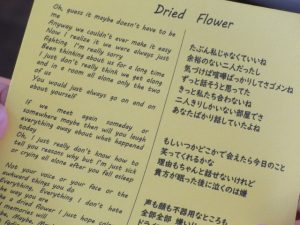 Dried Flower
Oh, guess it maybe doesn't have to be
me
Anyway we couldn't ever make it easy
Now I realize it we were always just
fighting. I'm really sorry
Been thinking about us for a long time
I just don't really think we get along
and in a room all alone only the two
of us
You would just always go on and on
about yourself
If we meet again someday or
somewhere maybe then will you laugh
everything away about what happened
today
Oh, I just really don't know how to
tell you reason why but I'm just sick
or crying all alone after you fall asleep
Not your voice or your face or the
awkward things you do
Everything, Everything I don't hate
the way you are
like a dried flower I just hope
memories will
Maybe, Maybe
たぶん私じゃなくていいね
余裕のない二人だったし
気づけば喧嘩ばっかりしてさゴメンね
ずっと話そうと思ってた
きっと私たち合わないね
二人きりしかいない部屋でさ
あなたばかり話していたよね
もしいつかどこかで会えたら今日のこと
笑ってくれるかな
理由もちゃんと話せないけれど
貴方が眠った後に泣くのは嫌
声も顔も不器用なところも
全部全部